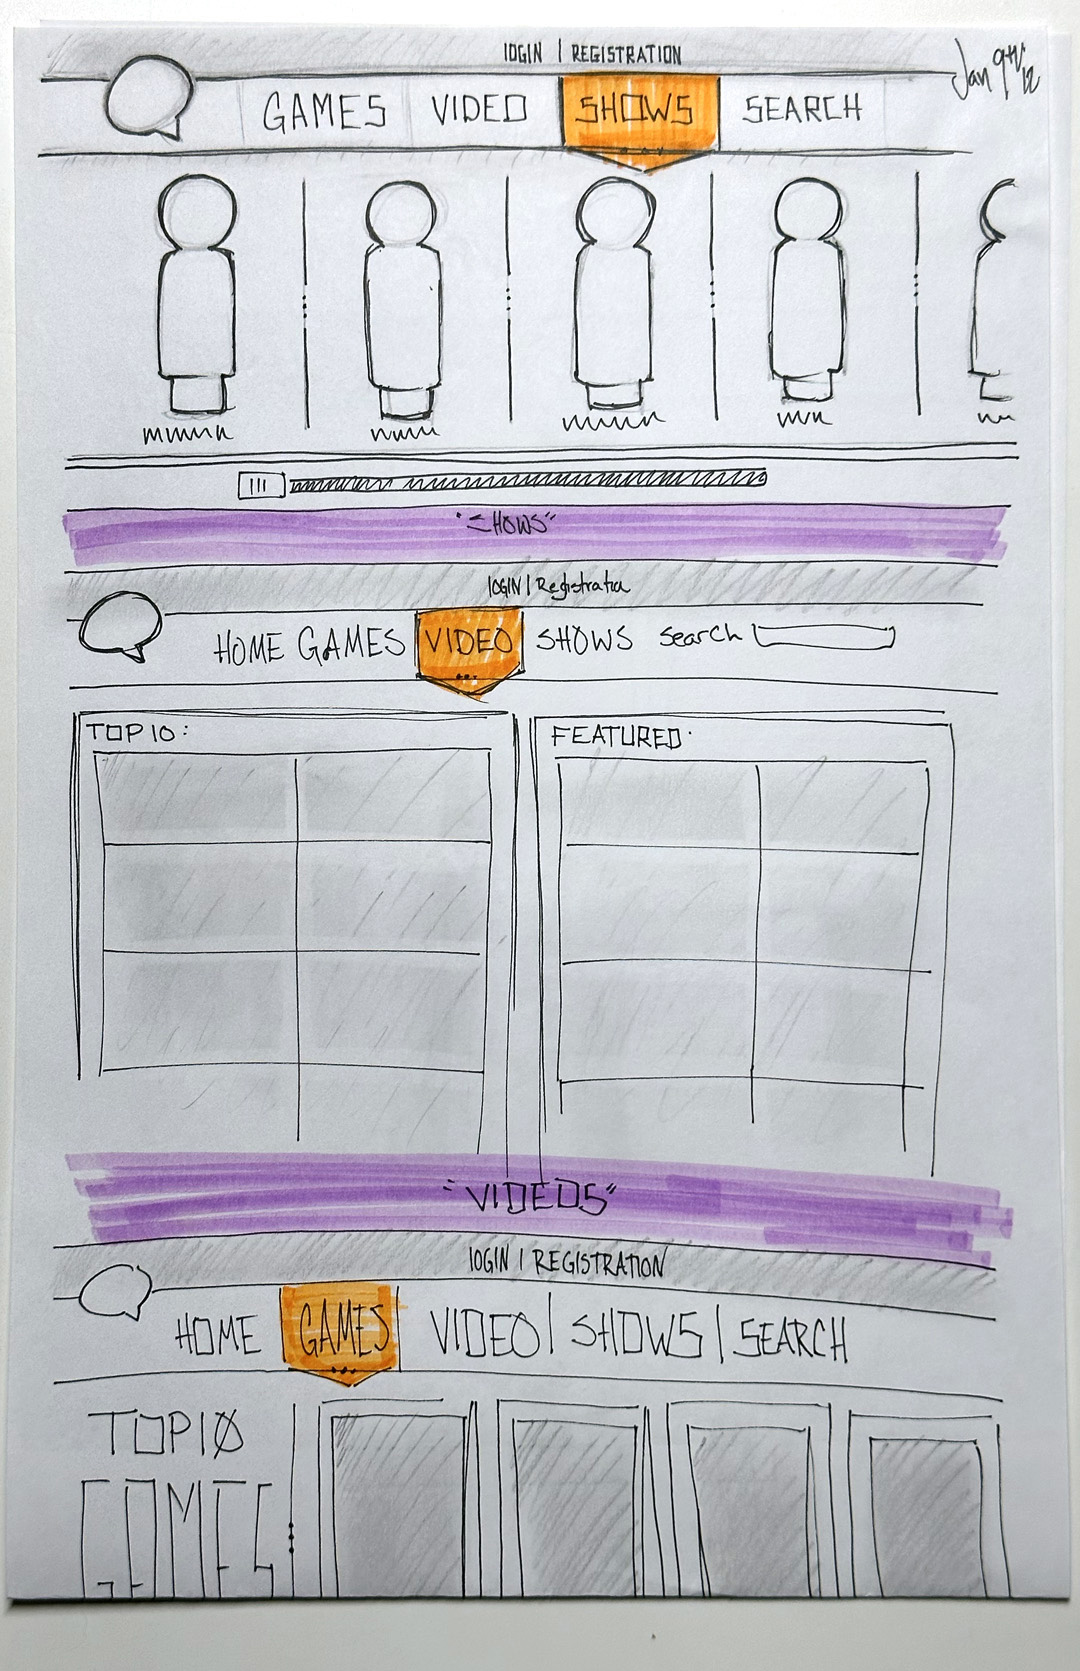 LOGIN | REGISTRATION
Jan 9th/12
GAMES VIDEO SHOWS SEARCH
"SHOWS"
LOGIN | Registration
HOME GAMES VIDEO SHOWS search
TOP 10:
FEATURED:
"VIDEOS"
LOGIN | REGISTRATION
HOME GAMES VIDEO | SHOWS | SEARCH
TOP 10
GAMES